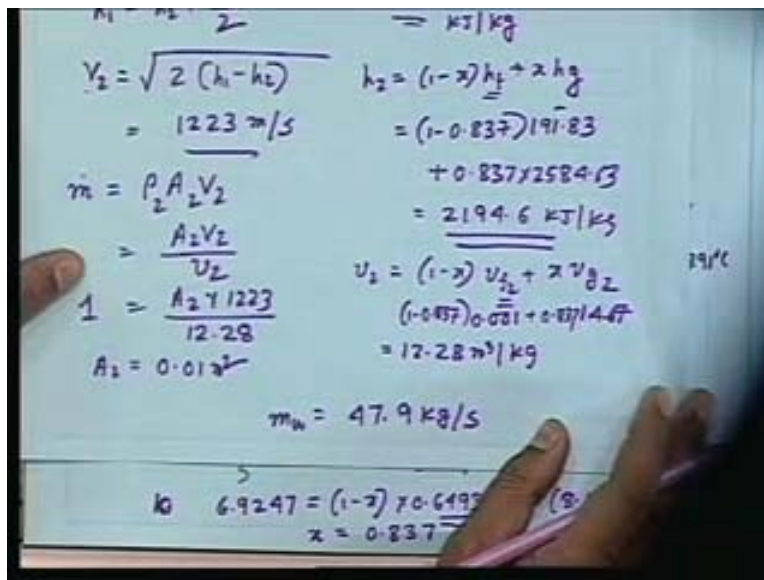 2
= kJ/kg
V₂ = √2 (h₁-h₂)
= 1223 m/s
ṁ = ρ₂ A₂ V₂
= A₂V₂ / v₂
1 = A₂ × 1223 / 12.28
A₂ = 0.01 m²
h₂ = (1-x) hf + x hg
= (1-0.837) 191.83
+ 0.837 × 2584.63
= 2194.6 kJ/kg
v₂ = (1-x) vf₂ + x vg₂
(1-0.837) 0.001 + 0.837 14.67
= 12.28 m³/kg
391°C
= 47.9 kg/s
6.9247 = (1-x) × 0.6493 (8.
x = 0.837